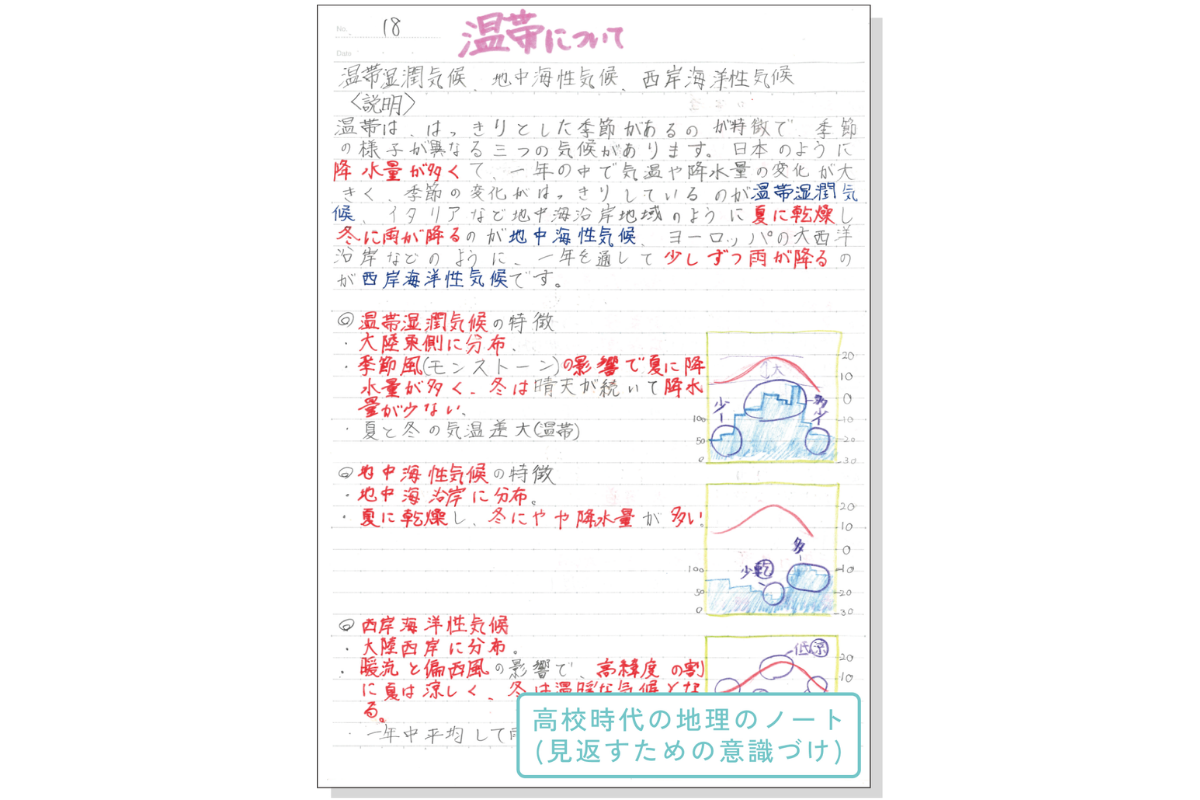 No. 18
Date
温帯について
温帯湿潤気候、地中海性気候、西岸海洋性気候
〈説明〉
温帯は、はっきりとした季節があるのが特徴で、季節
の様子が異なる三つの気候があります。日本のように
降水量が多くて、一年の中で気温や降水量の変化が大
きく、季節の変化がはっきりしているのが温帯湿潤気
候、イタリアなど地中海沿岸地域のように夏に乾燥し
冬に雨が降るのが地中海性気候、ヨーロッパの大西洋
沿岸などのように、一年を通して少しずつ雨が降るの
が西岸海洋性気候です。
◎温帯湿潤気候の特徴
・大陸東側に分布、
・季節風(モンストーン)の影響で夏に降
水量が多く、冬は晴天が続いて降水
量が少ない、
・夏と冬の気温差大(温帯)
大
少
少
20
10
0
-10
-20
-30
100
50
0
◎地中海性気候の特徴
・地中海沿岸に分布。
・夏に乾燥し、冬にやや降水量が多い。
多
少乾
20
10
0
-10
-20
-30
100
50
0
◎西岸海洋性気候
・大陸西岸に分布。
・暖流と偏西風の影響で、高緯度の割
に夏は涼しく、冬は温暖な気候とな
る。
・一年中平均して雨
低涼
20
10
高校時代の地理のノート
(見返すための意識づけ)